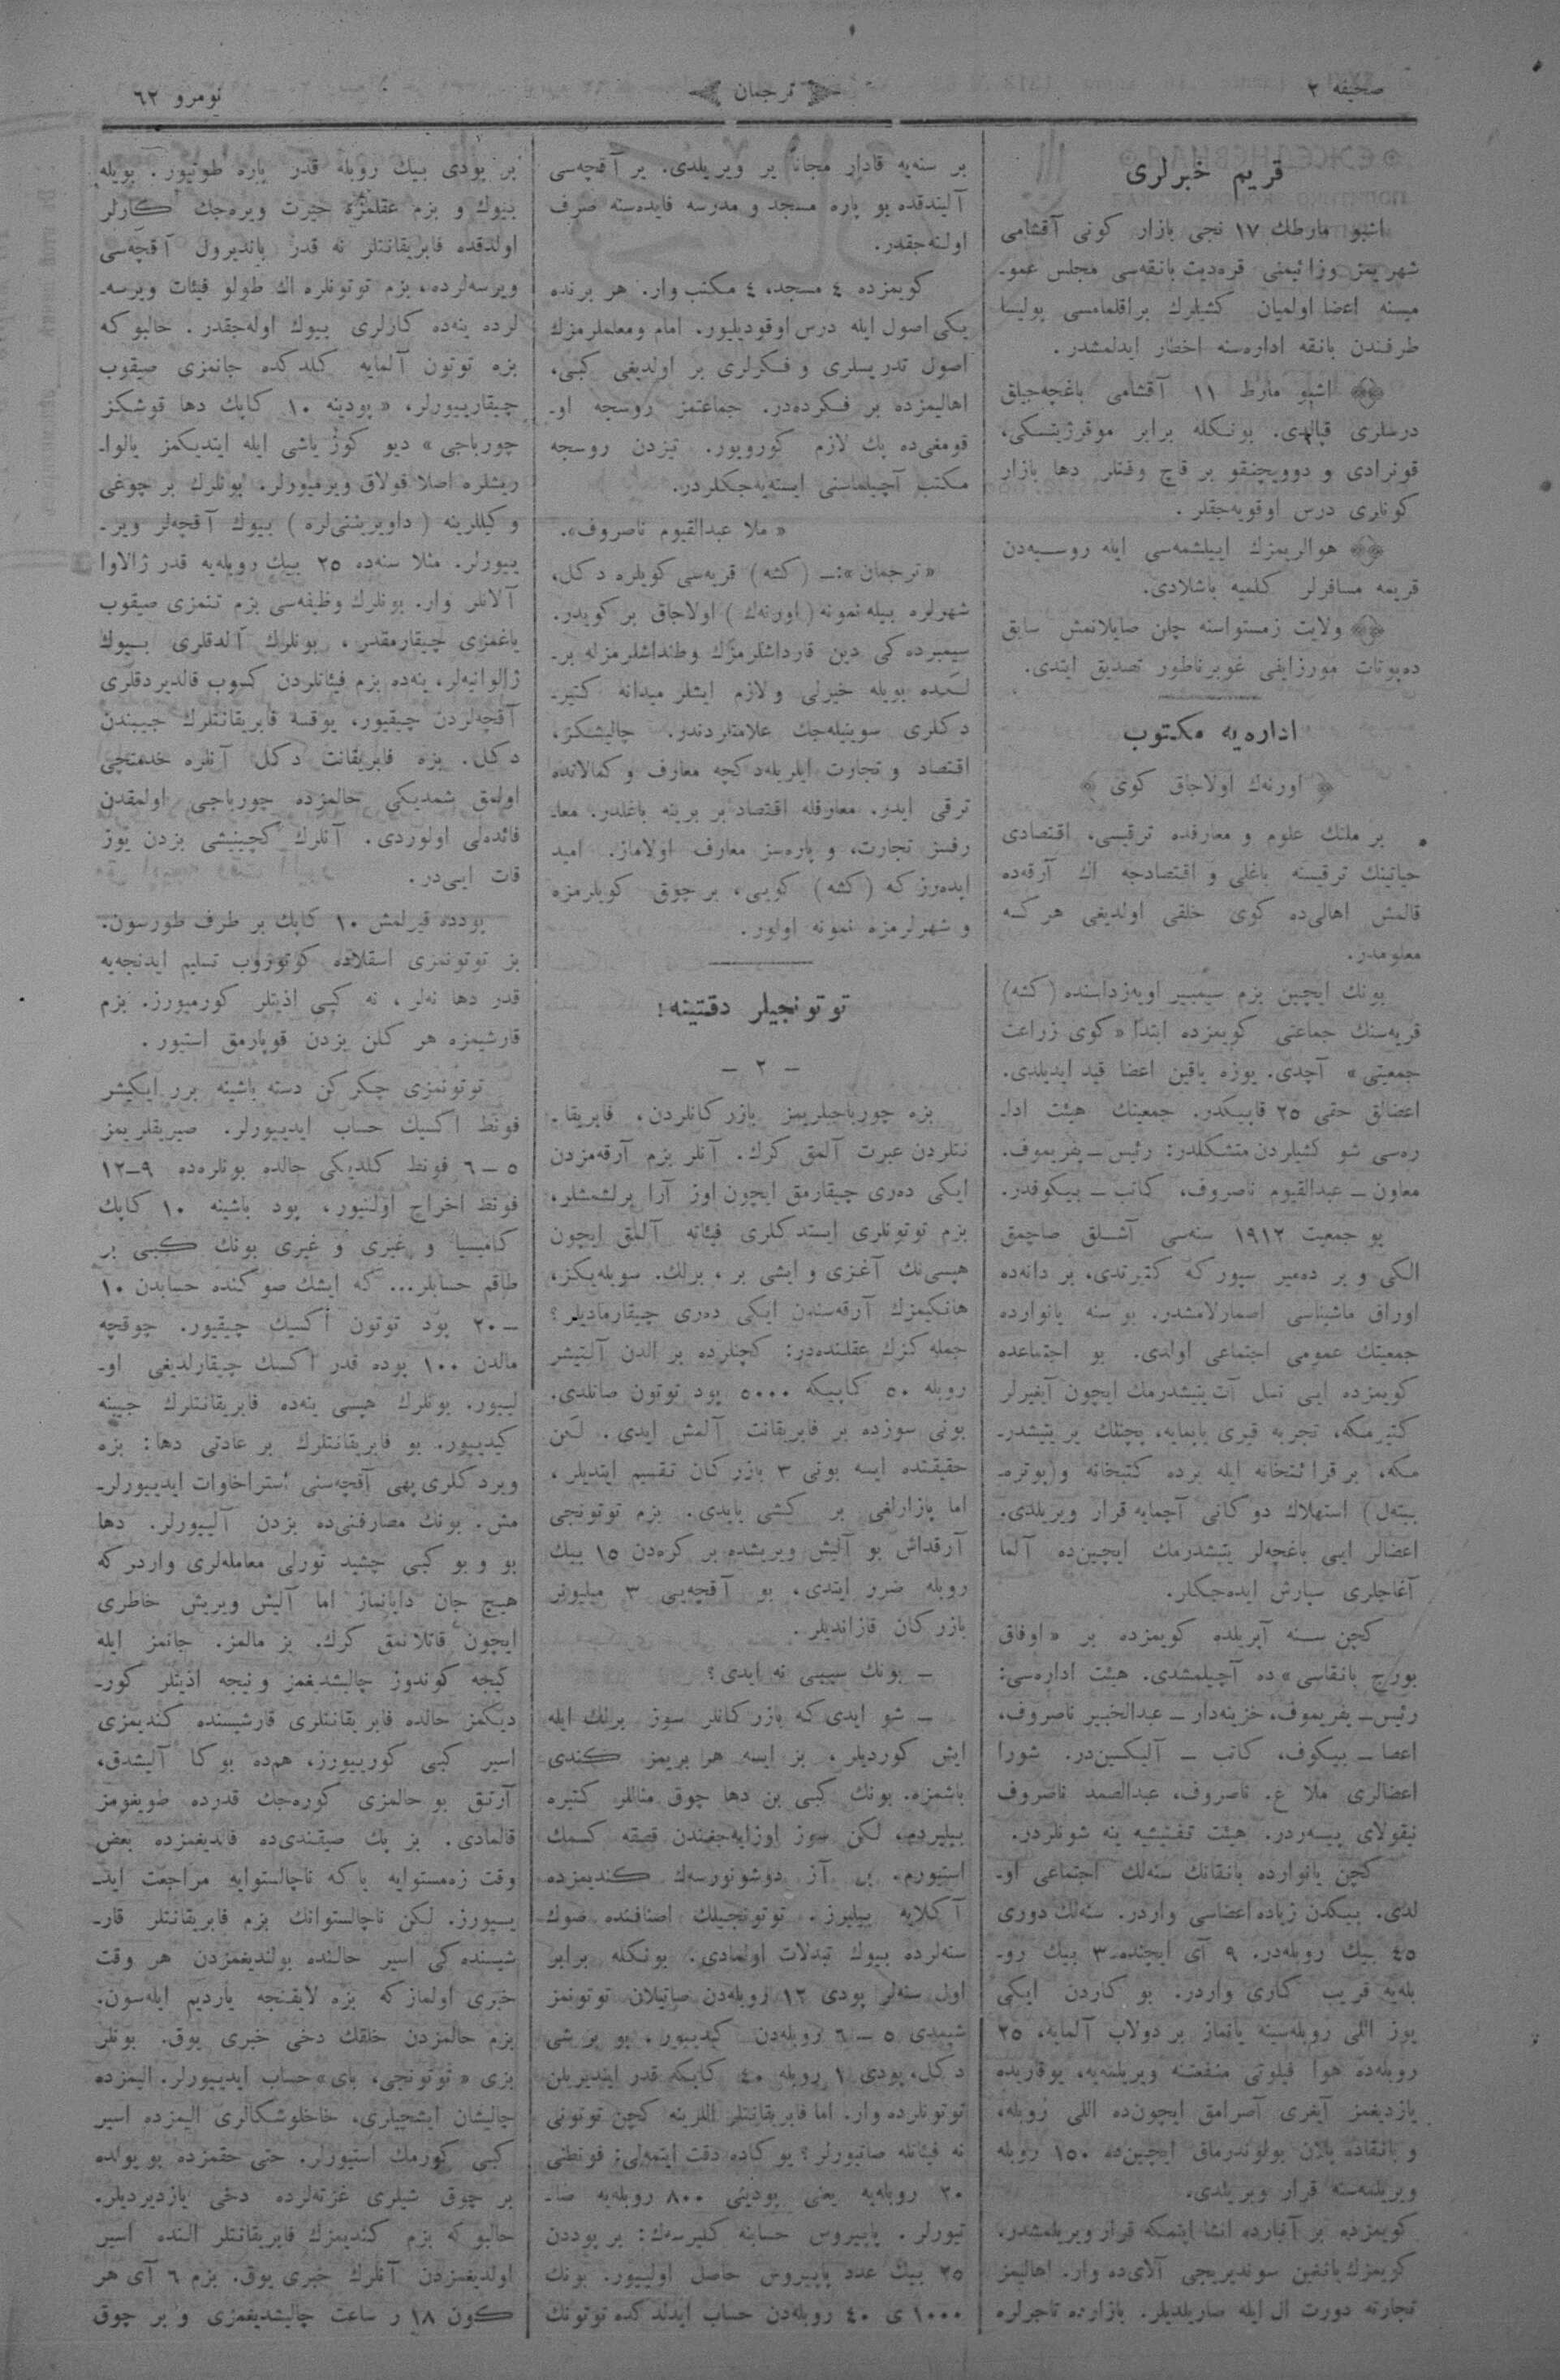 صحیفه ۲
ترجمان
نومرو ٦٢
قریم خبرلری
اشبو مارطك ١٧ نجی بازار كونی آقشامی
شهریمز وزائیمنی قره‌دیت بانقه‌سی مجلس عمو-
میسنه اعضا اولمیان كشیلرك براقلمامسی پولیسا
طرفندن بانقه اداره‌سنه اخطار ایدلمشدر.
اشبو مارط ١١ آقشامی باغچه‌جیلق
درسلری قپالدی. بونكله برابر موقرژیتسكی،
قونرادی و دوویچنقو بر قاچ وقتلر دها بازار
كونلری درس اوقویه‌جقلر.
هوالریمزك اییلشمه‌سی ایله روسیه‌دن
قریمه مسافرلر كلمیه باشلادی.
ولایت زمستواسنه چلن صایلانمش سابق
ده‌پوتات مورزایفی غوبرناطور تصدیق ایتدی.
اداره‌یه مكتوب
اورنه‌ك اولاجاق كوی
بر ملتك علوم و معارفده ترقیسی، اقتصادی
حیاتینك ترقیسنه باغلی و اقتصادجه اك آرقه‌ده
قالمش اهالی‌ده كوی خلقی اولدیغی هركسه
معلومدر.
بونك ایچین بزم سیمبیر اویه‌زداسنده (كشه)
قریه‌سنك جماعتی كویمزده ابتدا «كوی زراعت
جمعیتی» آچدی. یوزه یاقین اعضا قید ایدیلدی.
اعضالق حقی ٢٥ قاپیكدر. جمعیتك هیئت ادا-
ره‌سی شو كشیلردن متشكلدر: رئیس ـ یفریموف،
معاون ـ عبدالقیوم ناصروف، كاتب ـ بیكوفدر.
بو جمعیت ١٩١٢ سنه‌سی آشلق صاچمق
الكی و بر ده‌میر سپوركه كتیرتدی، بر دانه‌ده
اوراق ماشیناسی اصمارلامشدر. بو سنه یانوارده
جمعیتك عمومی اجتماعی اولدی. بو اجتماعده
كویمزده ایی نسل آت یتیشدرمك ایچون آیغیرلر
كتیرمكه، تجربه قیری یاپمایه، پچنلك یر یتیشدر-
مكه، بر قرائتخانه ایله برده كتبخانه و(پوتره-
بیته‌ل) استهلاك دوكانی آچمایه قرار ویریلدی.
اعضالر ایی باغچه‌لر یتیشدرمك ایچین‌ده آلما
آغاجلری سپارش ایده‌جكلر.
كچن سنه آپریلده كویمزده بر «اوفاق
بورج بانقاسی» ده آچیلمشدی. هیئت اداره‌سی:
رئیس ـ یفریموف، خزینه‌دار ـ عبدالخبیر ناصروف،
اعضا ـ بیكوف، كاتب ـ آلیكسین‌در. شورا
اعضالری ملا ع. ناصروف، عبدالصمد ناصروف
نیقولای پیسه‌ردر. هیئت تفتیشیه ینه شونلردر.
كچن یانوارده بانقانك سنه‌لك اجتماعی او-
لدی. بیكدن زیاده اعضاسی واردر. سنه‌لك دوری
٤٥ بیك روبله‌در. ٩ آی ایچنده ٣ بیك رو-
بله‌یه قریب كاری واردر. بو كاردن ایكی
یوز اللی روبله‌سینه یانماز بر دولاب آلمایه، ٢٥
روبله‌ده هوا فیلوتی منفعتنه ویریلمه‌یه، یوقاریده
یازدیغمز آیغری آصرامق ایچون‌ده اللی روبله،
و بانقاده یلان بولوندرماق ایچین‌ده ١٥٠ روبله
ویریلمه‌سنه قرار ویریلدی.
كویمزده بر آنبارده انشا ایتمكه قرار ویریلمشدر.
كویمزك یانغین سوندیریجی آلای‌ده وار. اهالیمز
تجارته دورت ال ایله صاریلدیلر. بازارده تاجرلره
بر سنه‌یه قادار مجاناً یر ویریلدی. یر آقچه‌سی
آلیندقده بو پاره مسجد و مدرسه فایده‌سنه صرف
اولنه‌جقدر.
كویمزده ٤ مسجد، ٤ مكتب وار. هر برنده
یكی اصول ایله درس اوقودیلیور. امام ومعلملرمزك
اصول تدریسلری و فكرلری بر اولدیغی كبی،
اهالیمزده بر فكرده‌در. جماعتمز روسجه او-
قومغی‌ده پك لازم كورویور. تیزدن روسجه
مكتب آچیلماسنی ایسته‌یه‌جكلردر.
«ملا عبدالقیوم ناصروف».
«ترجمان»:ـ (كشه) قریه‌سی كویلره دكل،
شهرلره بیله نمونه (اورنه‌ك) اولاجاق بر كویدر.
سیمبرده كی دین قارداشلرمزك وطنداشلرمزله بر-
لكده بویله خیرلی ولازم ایشلر میدانه كتیر-
دكلری سوینیله‌جك علامتلردندر. چالیشكز،
اقتصاد و تجارت ایلریله‌دكچه معارف وكمالاتده
ترقی ایدر. معارفله اقتصاد بر برینه باغلدر. معا-
رفسز تجارت، و پاره‌سز معارف اولاماز. امید
ایده‌رزكه (كشه) كویی، بر چوق كویلرمزه
و شهرلرمزه نمونه اولور.
توتونجیلر دقتینه!
– ٢ –
بزه چورباجیلریمز بازركانلردن، فابریقا-
نتلردن عبرت آلمق كرك. آنلر بزم آرقه‌مزدن
ایكی ده‌ری چیقارمق ایچون اوز آرا برلشمشلر،
بزم توتونلری ایستدكلری فیئاته آلمق ایچون
هپسی‌نك آغزی و ایشی بر، برلك. سویله‌یكز،
هانكیمزك آرقه‌سندن ایكی ده‌ری چیقارمادیلر؟
جمله‌كزك عقلنده‌در: كچنلرده بر الدن آلتیشر
روبله ٥٠ كاپیكه ٥٠٠٠ پود توتون صاتلدی.
بونی سوزده بر فابریقانت آلمش ایدی. لكن
حقیقتده ایسه بونی ٣ بازركان تقسیم ایتدیلر،
اما پازارلغی بر كشی یاپدی. بزم توتونجی
آرقداش بو آلیش ویریشده بر كره‌دن ١٥ بیك
روبله ضرر ایتدی، بو آقچه‌یی ٣ میلیونر
بازركان قازاندیلر.
ـ بونك سببی نه ایدی؟
ـ شو ایدی كه بازركانلر سوز برلك ایله
ایش كوردیلر، بز ایسه هر بریمز كندی
باشمزه. بونك كبی بن دها چوق مثاللر كتیره
بیلیردم، لكن سوز اوزایه‌جغندن قیقه كسمك
استیورم. بر آز دوشونورسه‌ك كندیمزده
آكلایه بیلیرز. توتونجیلك اصنافنده صوك
سنه‌لرده بیوك تبدلات اولمادی. بونكله برابر
اول سنه‌لر پودی ١٢ روبله‌دن صاتیلان توتونمز
شیمدی ٥ ـ ٦ روبله‌دن كیدییور. بو بر شی
دكل، پودی ١ روبله ٤٠ كاپیكه قدر ایندیریلن
توتونلرده وار. اما فابریقانتلر اللرینه كچن توتونی
نه فیئاتله صاتیورلر؟ بوكاده دقت ایتمه‌لی: فونطنی
٢٠ روبله‌یه یعنی پودینی ٨٠٠ روبله‌یه صا-
تیورلر. پاپیروس حسابنه كلیرسه‌ك: بر پوددن
٢٥ بیك عدد پاپیروس حاصل اولییور. بونك
١٠٠٠ ی ٤٠ روبله‌دن حساب ایدلدكده توتونك
بر پودی بیك روبله قدر پاره طوتیور. بویله
بیوك و بزم عقلمزه حیرت ویره‌جك كارلر
اولدقده فابریقانتلر نه قدر باندیرول آقچه‌سی
ویرسه‌لرده، بزم توتونلره اك طولو فیئات ویرسه-
لرده ینه‌ده كارلری بیوك اوله‌جقدر. حالبوكه
بزه توتون آلمایه كلدكده جانمزی صیقوب
چیقارییورلر، «پودینه ١٠ كاپك دها قوشكز
چورباجی» دیو كوز یاشی ایله ایتدیكمز یالوا-
ریشلره اصلا قولاق ویرمیورلر. بونلرك بر چوغی
وكیللرینه (داویریننی‌لره) بیوك آقچه‌لر ویر-
ییورلر. مثلا سنه‌ده ٢٥ بیك روبله‌یه قدر ژالاوا
آلانلر وار. بونلرك وظیفه‌سی بزم تنمزی صیقوب
یاغمزی چیقارمقدر، بونلرك آلدقلری بیوك
ژالوانیه‌لر، ینه‌ده بزم فیئاتلردن كسوب قالدیردقلری
آقچه‌لردن چیقیور، یوقسه فابریقانتلرك جیبندن
دكل. بزه فابریقانت دكل آنلره خدمتچی
اولمق شمدیكی حالمزده چورباجی اولمقدن
فائده‌لی اولوردی. آنلرك كچینیشی بزدن یوز
قات ایی‌در.
پودده قیرلمش ١٠ كاپك بر طرف طورسون.
بز توتونمزی اسقلاده كوتوروب تسلیم ایدنجه‌یه
قدر دها نه‌لر، نه كبی اذیتلر كورمیورز. بزم
قارشیمزه هر كلن بزدن قوپارمق استیور.
توتونمزی چكركن دسته باشینه برر ایكیشر
فونط اكسیك حساب ایدییورلر. صیریقلریمز
٥ ـ ٦ فونط كلدیكی حالده بونلره‌ده ٩ـ١٢
فونط اخراج اولنیور، پود باشینه ١٠ كاپك
كامیسیا و غیری و غیری بونك كبی بر
طاقم حسابلر... كه ایشك صوكنده حسابدن ١٠
ـ ٢٠ پود توتون اكسیك چیقیور. چوقچه
مالدن ١٠٠ پوده قدر اكسك چیقارلدیغی او-
لییور. بونلرك هپسی ینه‌ده فابریقانتلرك جیبینه
كیدییور. بو فابریقانتلرك بر عادتی دها: بزه
ویردكلری پهی آقچه‌سنی استراخاوات ایدییورلر-
مش. بونك مصارفنی‌ده بزدن آلییورلر. دها
بو و بو كبی چشید تورلی معامله‌لری واردر كه
هیچ جان دایانماز اما آلیش ویریش خاطری
ایچون قاتلانمق كرك. بز مالمز. جانمز ایله
كیجه كوندوز چالیشدیغمز ونیجه اذیتلر كور-
دیكمز حالده فابریقانتلری قارشیسنده كندیمزی
اسیر كبی كورییورز، هم‌ده بوكا آلیشدق،
آرتق بو حالمزی كوره‌جك قدرده طویغومز
قالمادی. بز پك صیقندی‌ده قالدیغمزده بعض
وقت زه‌مستوایه یا كه ناچالستوایه مراجعت ایده-
یییورز. لكن ناچالستوانك بزم فابریقانتلر قار-
شیسنده كی اسیر حالنده بولندیغمزدن هر وقت
خبری اولمازكه بزه لایقنجه یاردیم ایله‌سون.
بزم حالمزدن خلقك دخی خبری یوق. بونلر
بزی «توتونجی، بای» حساب ایدییورلر. الیمزده
چالیشان ایشچیلری، خاخلوشكالری الیمزده اسیر
كبی كورمك استیورلر. حتی حقمزده بو یولده
بر چوق شیلری غزته‌لرده دخی یازدیردیلر.
حالبوكه بزم كندیمزك فابریقانتلر النده اسیر
اولدیغمزدن آنلرك خبری یوق. بزم ٦ آی هر
كون ١٨ ر ساعت چالیشدیغمزی و بر چوق